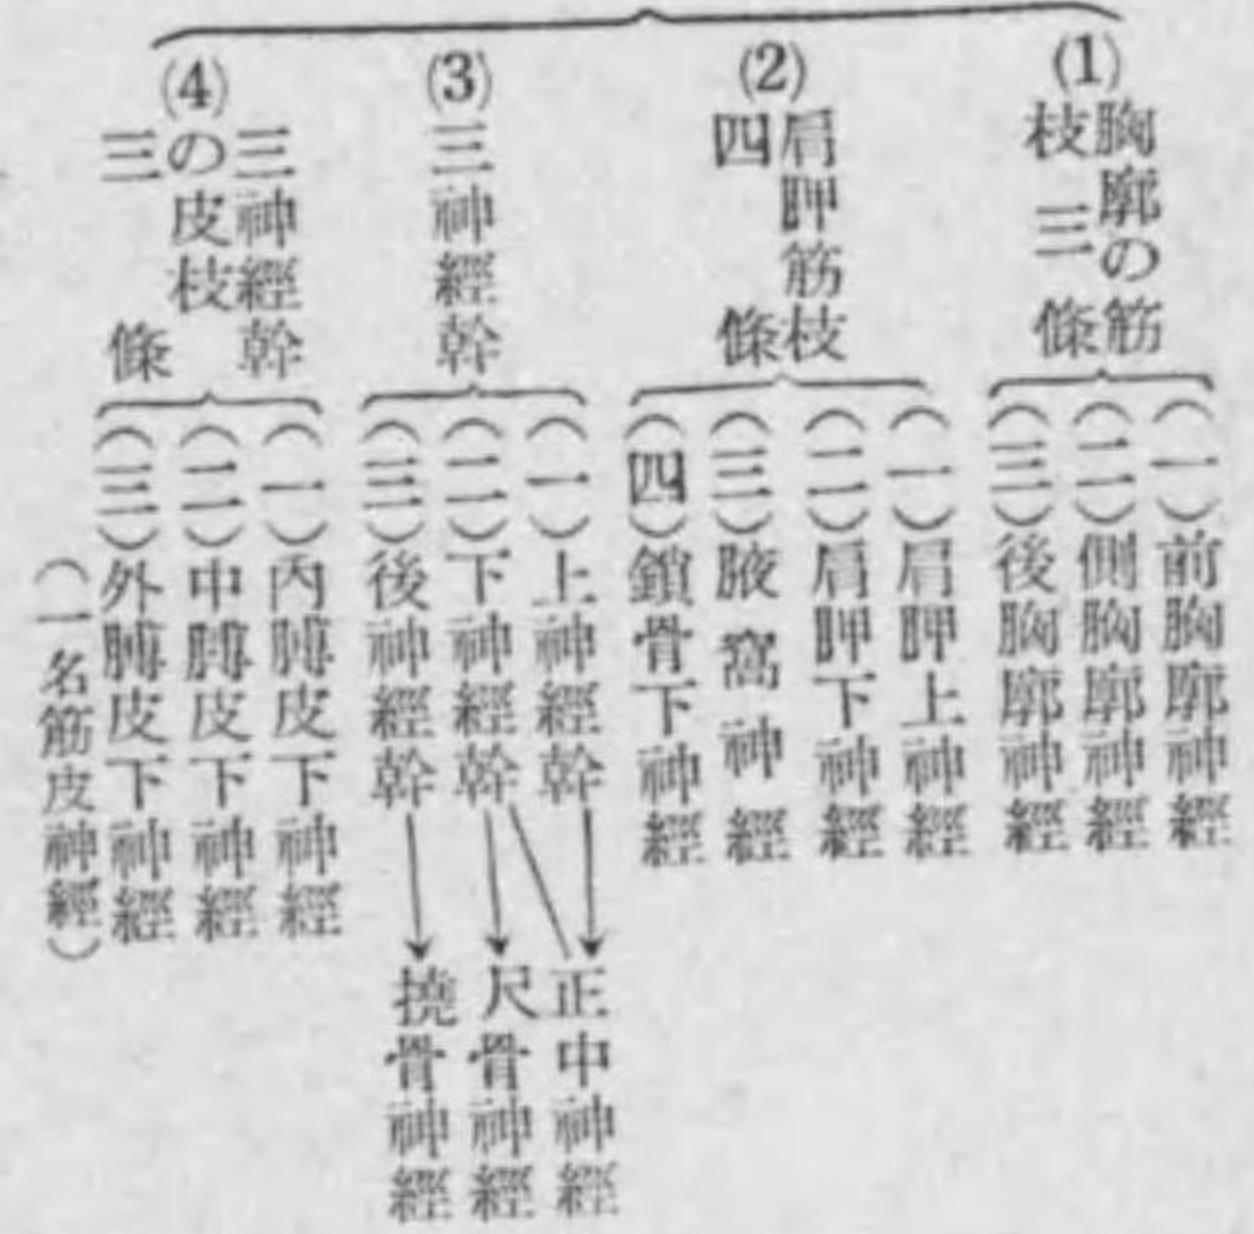 (1)
胸廓の筋
枝三條
(一)前胸廓神經
(二)側胸廓神經
(三)後胸廓神經
(2)
肩胛筋枝
四條
(一)肩胛上神經
(二)肩胛下神經
(三)腋窩神經
(四)鎖骨下神經
(3)
三神經幹
(一)上神經幹
(二)下神經幹
(三)後神經幹
正中神經
尺骨神經
撓骨神經
(4)
三神經幹
の皮枝
三條
(一)內膊皮下神經
(二)中膊皮下神經
(三)外膊皮下神經
(一名筋皮神經)